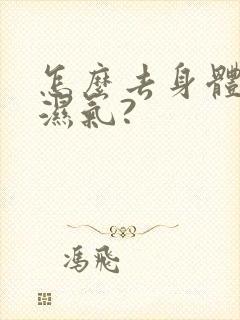 怎麼去身體
濕氣?
馮飛